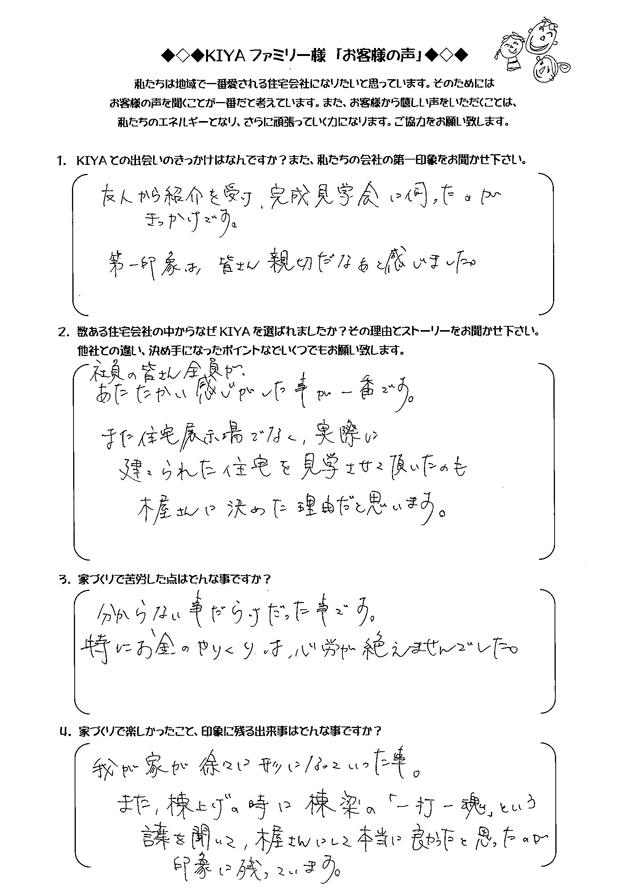 ◆◇◆KIYAファミリー様「お客様の声」◆◇◆
私たちは地域で一番愛される住宅会社になりたいと思っています。そのためには
お客様の声を聞くことが一番だと考えています。また、お客様から嬉しい声をいただくことは、
私たちのエネルギーとなり、さらに頑張っていく力になります。ご協力をお願い致します。
1. KIYAとの出会いのきっかけはなんですか？また、私たちの会社の第一印象をお聞かせ下さい。
友人から紹介を受け、完成見学会に伺ったのが
きっかけです。
第一印象は、皆さん親切だなあと感じました。
2. 数ある住宅会社の中からなぜKIYAを選ばれましたか？その理由とストーリーをお聞かせ下さい。
他社との違い、決め手になったポイントなどいくつでもお願い致します。
社員の皆さん全員が、
あたたかい感じがした事が一番です。
また住宅展示場でなく、実際に
建てられた住宅を見学させて頂いたのも
木屋さんに決めた理由だと思います。
3. 家づくりで苦労した点はどんな事ですか？
分からない事だらけだった事です。
特にお金のやりくりは、心労が絶えませんでした。
4. 家づくりで楽しかったこと、印象に残る出来事はどんな事ですか？
我が家が徐々に形になっていった事。
また、棟上げの時に棟梁の「一打一魂」という
言葉を聞いて、木屋さんにして本当に良かったと思ったのが
印象に残っています。